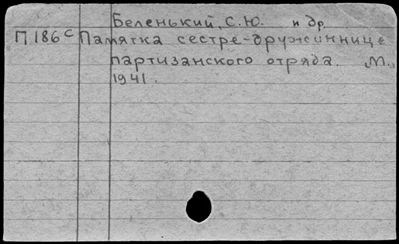 Беленький, С.Ю. и др.
П186с Памятка сестре-дружиннице
партизанского отряда. М.
1941.